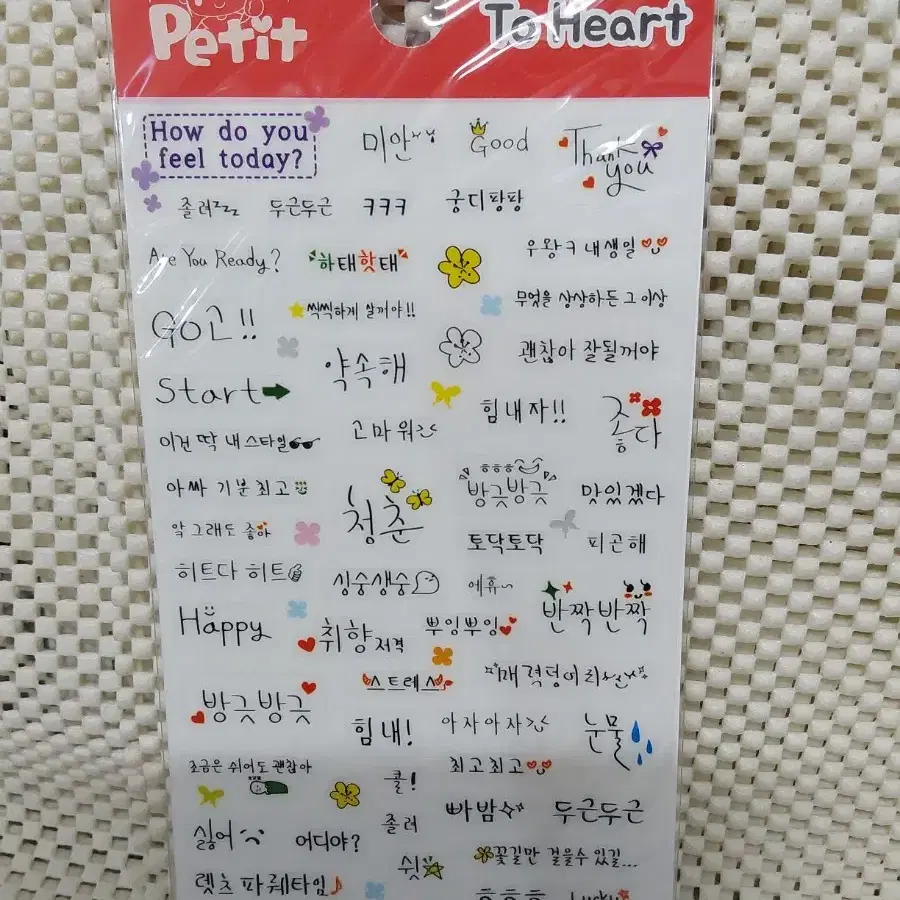 Petit
To Heart
How do you
feel today?
미안
Good
Thank
you
졸려zzz
두근두근
ㅋㅋㅋ
궁디팡팡
Are You Ready?
하태핫태
우왕ㅋ 내생일
씩씩하게 살꺼야!!
무엇을 상상하든 그 이상
GO고!!
약속해
괜찮아 잘될꺼야
Start
힘내자!!
좋다
이건 딱 내스타일
고마워
아싸 기분최고
청춘
ㅎㅎㅎ
방긋방긋
맛있겠다
앜 그래도 좋아
토닥토닥
피곤해
히트다 히트
싱숭생숭
에휴~
반짝반짝
Happy
취향저격
뿌잉뿌잉
스트레스
매력덩어리
방긋방긋
힘내!
아자아자
눈물
조금은 쉬어도 괜찮아
콜!
최고최고
싫어
어디야?
졸려
빠밤
두근두근
쉿
꽃길만 걸을수 있길...
렛츠 파뤠타임
흐흐흐
Lucky